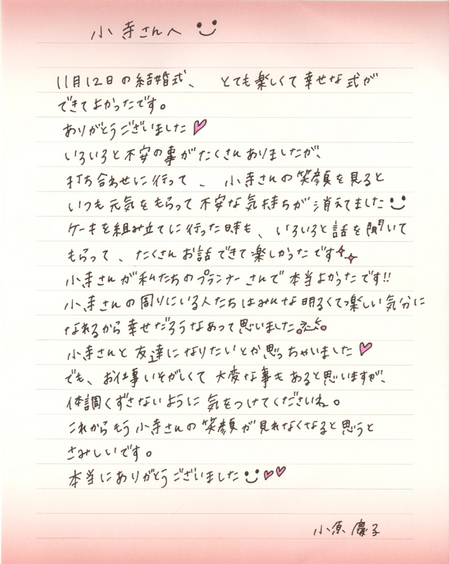 小寺さんへ
11月12日の結婚式、とても楽しくて幸せな式が
できてよかったです。
ありがとうございました
いろいろと不安の事がたくさんありましたが、
打ち合わせに行って、小寺さんの笑顔を見ると
いつも元気をもらって不安な気持ちが消えてました
ケーキを組み立てに行った時も、いろいろと話を聞いて
もらって、たくさんお話できて楽しかったです
小寺さんが私たちのプランナーさんで本当よかったです!!
小寺さんの周りにいる人たちはみんな明るくてっ楽しい気分に
なれるから幸せだろうなあって思いました。
小寺さんと友達になりたいとか思っちゃいました
でも、お仕事いそがしくて大変な事もあると思いますが、
体調くずさないように気をつけてくださいね。
これからもう小寺さんの笑顔が見れなくなると思うと
さみしいです。
本当にありがとうございました
小原 慶子